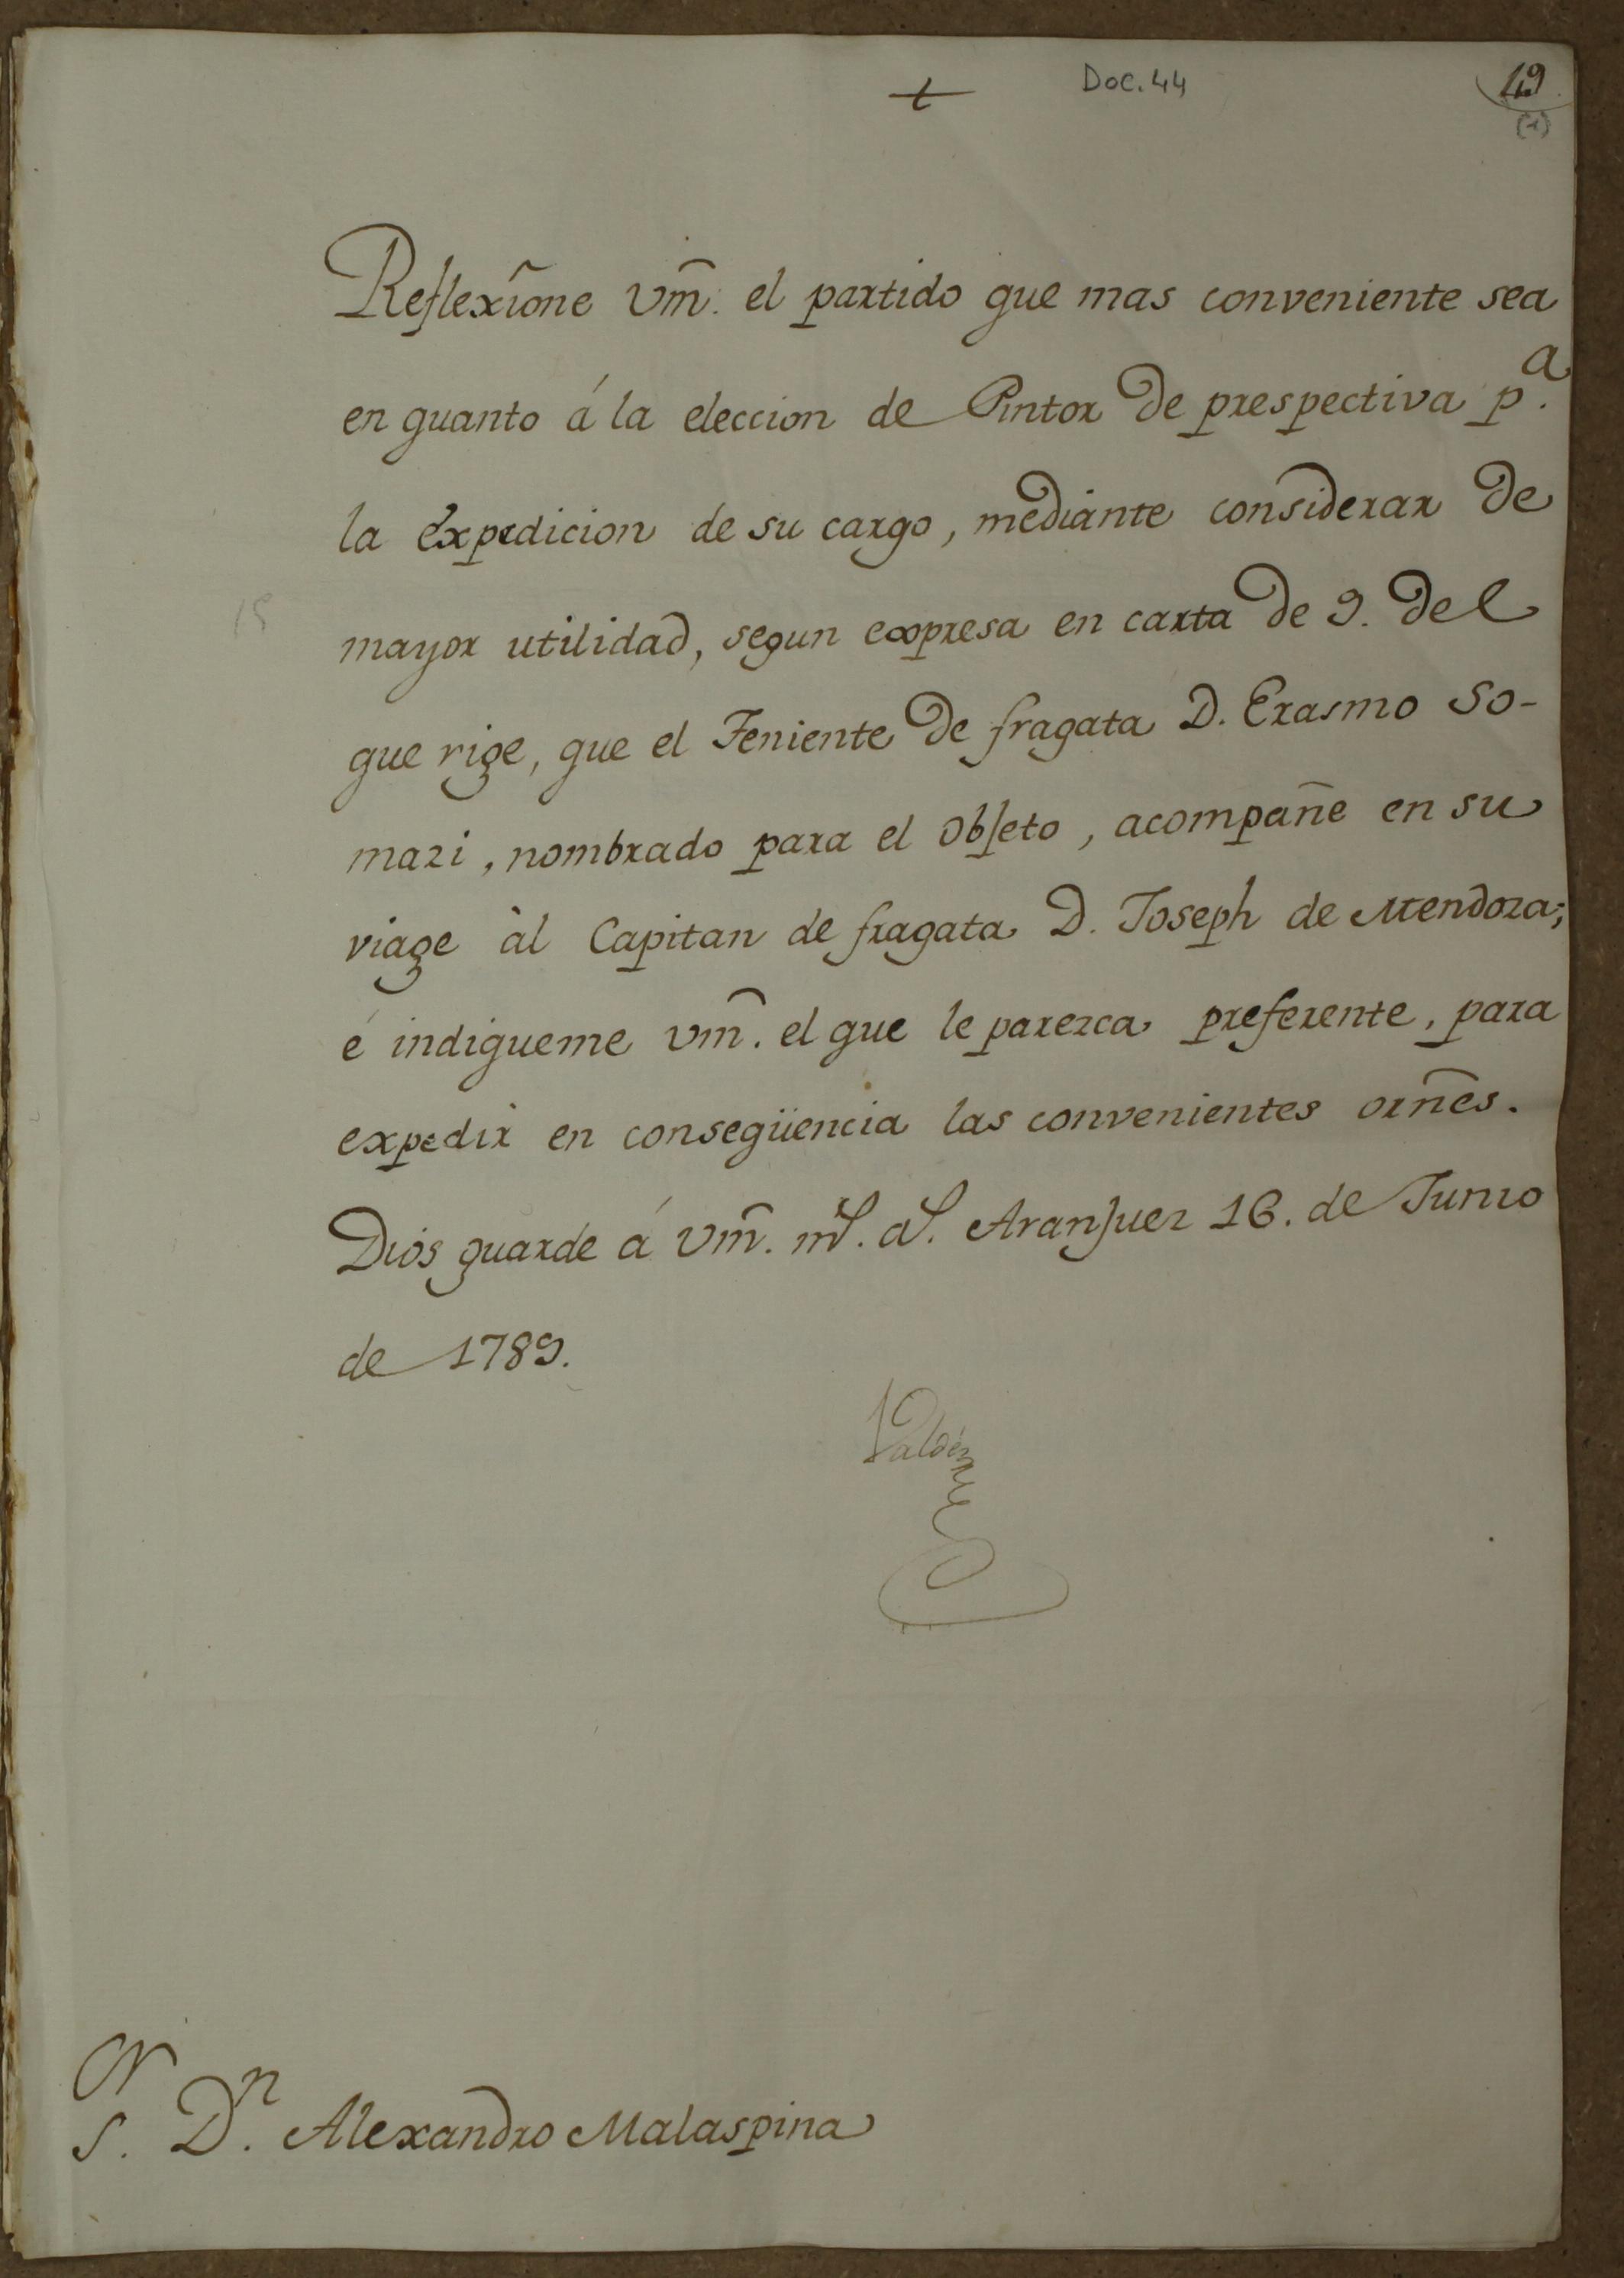 Doc. 44
49
(1)
Reflexîone Vm̃. el partido que mas conveniente sea
en quanto á la eleccion de Pintor de prespectiva p.ª
la expedicion de su cargo, mediante considerar de
15
mayor utilidad, segun expresa en carta de 9. del
que rige, que el Teniente de fragata D. Erasmo So-
mazi, nombrado para el objeto, acompañe en su
viage àl Capitan de fragata D. Joseph de Mendoza;
é indiqueme Vm̃. el que le parezca preferente, para
expedir en conseqüencia las convenientes orñes.
Dios guarde á Vm̃. m.s a.s Aranjuez 16. de Junio
de 1789.
Valdés
S.or D.n Alexandro Malaspina